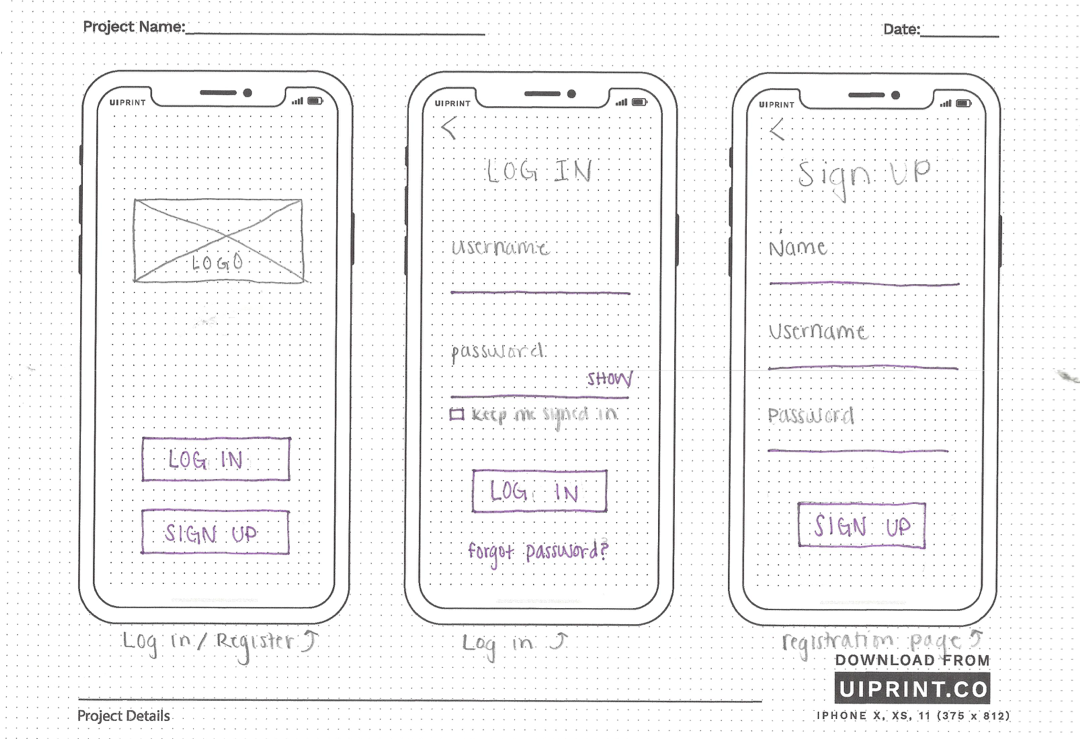 Project Name:
Date:
UIPRINT
LOGO
LOG IN
SIGN UP
Log in / Register
UIPRINT
LOG IN
username
password
SHOW
keep me signed in
LOG IN
forgot password?
Log in
UIPRINT
Sign UP
Name
Username
Password
SIGN UP
registration page
DOWNLOAD FROM
UIPRINT.CO
IPHONE X, XS, 11 (375 x 812)
Project Details